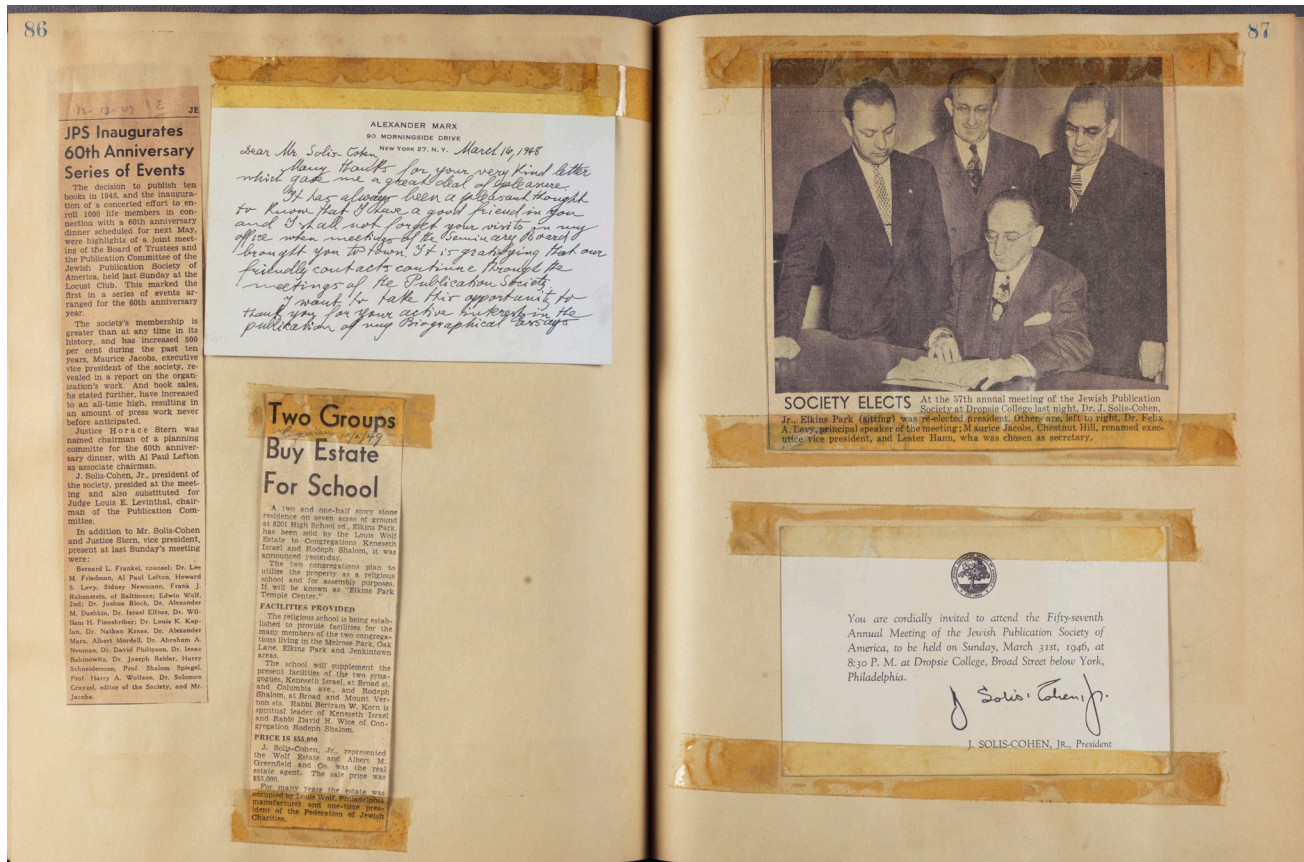 86
12-12-47 JE
JE
JPS Inaugurates
60th Anniversary
Series of Events
The decision to publish ten
books in 1948, and the inaugura-
tion of a concerted effort to en-
roll 1000 life members in con-
nection with a 60th anniversary
dinner scheduled for next May,
were highlights of a joint meet-
ing of the Board of Trustees and
the Publication Committee of the
Jewish Publication Society of
America, held last Sunday at the
Locust Club. This marked the
first in a series of events ar-
ranged for the 60th anniversary
year.
The society's membership is
greater than at any time in its
history, and has increased 500
per cent during the past ten
years, Maurice Jacobs, executive
vice president of the society, re-
vealed in a report on the organ-
ization's work. And book sales,
he stated further, have increased
to an all-time high, resulting in
an amount of press work never
before anticipated.
Justice Horace Stern was
named chairman of a planning
committe for the 60th anniver-
sary dinner, with Al Paul Lefton
as associate chairman.
J. Solis-Cohen, Jr., president of
the society, presided at the meet-
ing and also substituted for
Judge Louis E. Levinthal, chair-
man of the Publication Com-
mittee.
In addition to Mr. Solis-Cohen
and Justice Stern, vice president,
present at last Sunday's meeting
were:
Bernard L. Frankel, counsel; Dr. Lee
M. Friedman, Al Paul Lefton, Howard
S. Levy, Sidney Neumann, Frank J.
Rubenstein, of Baltimore; Edwin Wolf,
2nd; Dr. Joshua Bloch, Dr. Alexander
M. Dushkin, Dr. Israel Elfros, Dr. Wil-
liam H. Fineshriber; Dr. Louis K. Kap-
lan, Dr. Nathan Krass, Dr. Alexander
Marx, Albert Mordell, Dr. Abraham A.
Neuman, Dr. David Philipson, Dr. Isaac
Rabinowitz, Dr. Joseph Reider, Harry
Schneiderman, Prof. Shalom Spiegel,
Prof. Harry A. Wolfson, Dr. Solomon
Grayzel, editor of the Society, and Mr.
Jacobs.
ALEXANDER MARX
90 MORNINGSIDE DRIVE
NEW YORK 27, N. Y.
March 16, 1948
Dear Mr. Solis-Cohen,
Many thanks for your very kind letter
which gave me a great deal of pleasure.
It has always been a pleasant thought
to know that I have a good friend in you
and I shall not forget your visits in my
office when meetings of the Seminary Board
brought you to town. It is gratifying that our
friendly contacts continue through the
meetings of the Publication Society.
I want to take this opportunity to
thank you for your active interest in the
publication of my Biographical Essays
Two Groups
Buy Estate
For School
A two and one-half story stone
residence on seven acres of ground
at 8201 High School rd., Elkins Park,
has been sold by the Louis Wolf
Estate to Congregations Keneseth
Israel and Rodeph Shalom, it was
announced yesterday.
The two congregations plan to
utilize the property as a religious
school and for assembly purposes.
It will be known as "Elkins Park
Temple Center."
FACILITIES PROVIDED
The religious school is being estab-
lished to provide facilities for the
many members of the two congrega-
tions living in the Melrose Park, Oak
Lane, Elkins Park and Jenkintown
areas.
The school will supplement the
present facilities of the two syna-
gogues, Keneseth Israel, at Broad st.
and Columbia ave., and Rodeph
Shalom, at Broad and Mount Ver-
non sts. Rabbi Bertram W. Korn is
spiritual leader of Keneseth Israel
and Rabbi David H. Wice of Con-
gregation Rodeph Shalom.
PRICE IS $55,000
J. Solis-Cohen, Jr., represented
the Wolf Estate and Albert M.
Greenfield and Co. was the real
estate agent. The sale price was
$55,000.
For many years the estate was
occupied by Louis Wolf, Philadelphia
manufacturer and one-time pres-
ident of the Federation of Jewish
Charities.
87
SOCIETY ELECTS At the 57th annual meeting of the Jewish Publication
Society at Dropsie College last night, Dr. J. Solis-Cohen,
Jr., Elkins Park (sitting) was re-elected president. Others are, left to right, Dr. Felix
A. Levy, principal speaker of the meeting; Maurice Jacobs, Chestnut Hill, renamed exec-
utice vice president, and Lester Hann, wha was chosen as secretary.
You are cordially invited to attend the Fifty-seventh
Annual Meeting of the Jewish Publication Society of
America, to be held on Sunday, March 31st, 1946, at
8:30 P. M. at Dropsie College, Broad Street below York,
Philadelphia.
J Solis-Cohen, Jr.
J. SOLIS-COHEN, JR., President